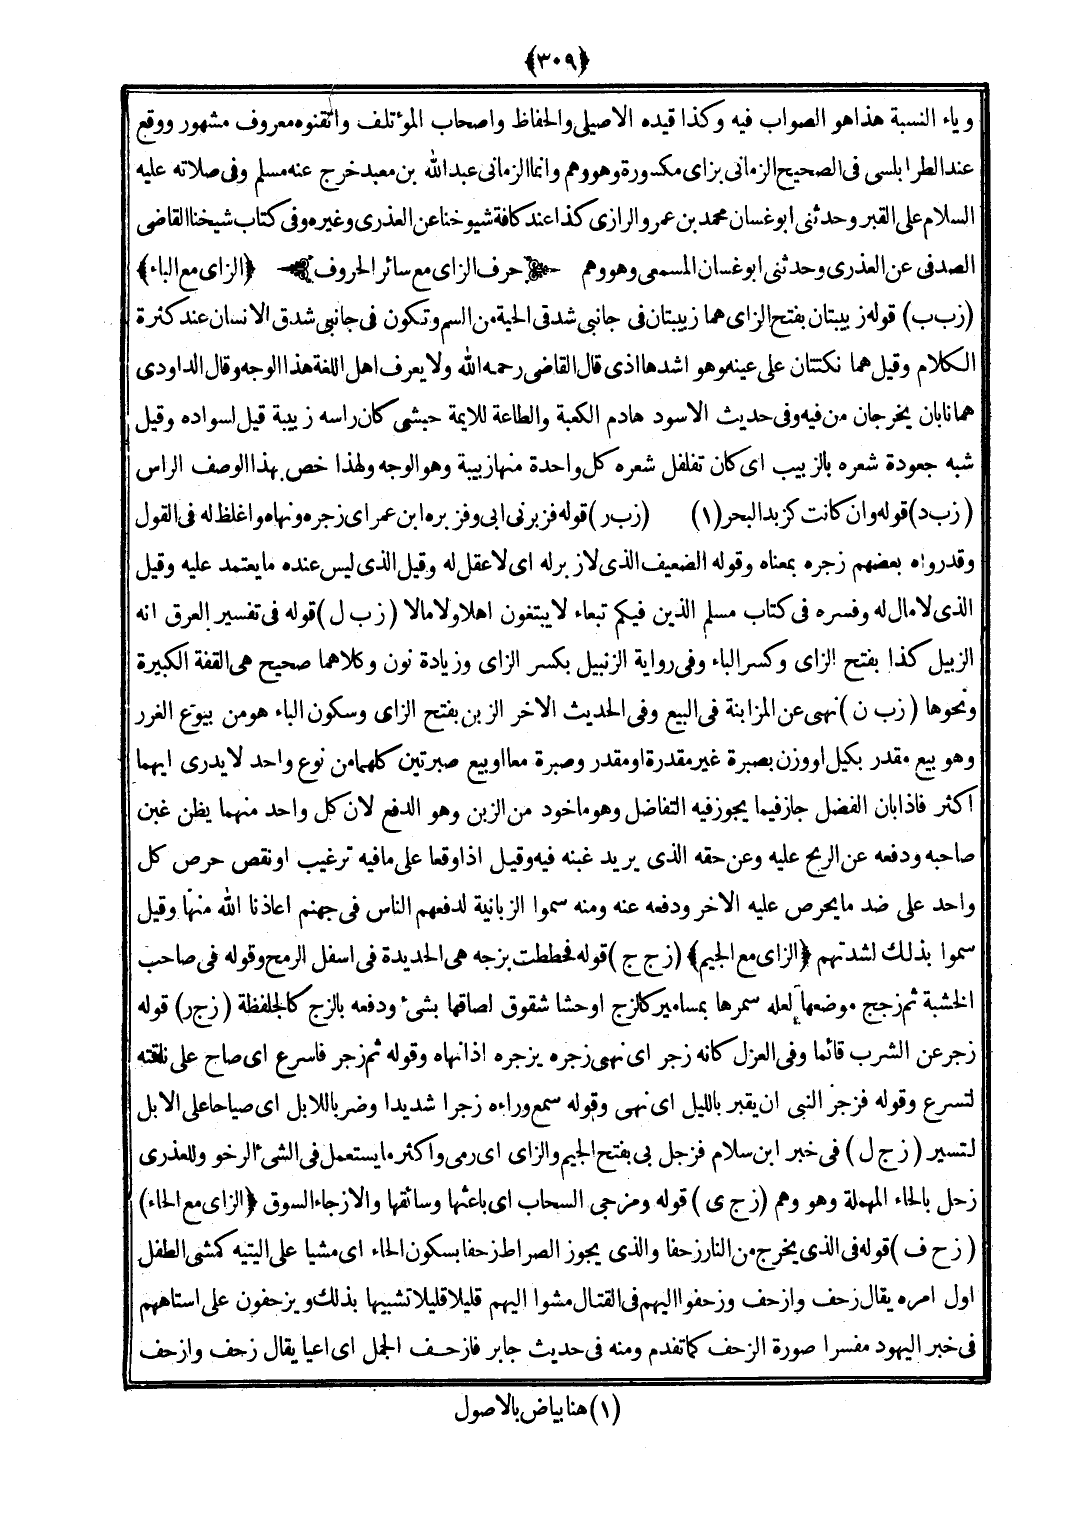 ﴿٣٠٩﴾
وياء النسبة هذا هو الصواب فيه وكذا قيده الاصيلي والحفاظ واصحاب المؤتلف واتقنوه معروف مشهور ووقع
عند الطرابلسى فى الصحيح الزمانى بزاى مكسورة وهو وهم وانما الزمانى عبد الله بن معبد خرج عنه مسلم وفى صلاته عليه
السلام على القبر وحدثنى ابو غسان محمد بن عمرو الرازى كذا عند كافة شيوخنا عن العذرى وغيره وفى كتاب شيخنا القاضى
الصدفى عن العذرى وحدثنى ابو غسان المسمعى وهو وهم حرف الزاى مع سائر الحروف ﴿الزاى مع الباء﴾
(ز ب ب) قوله زبيبتان بفتح الزاى هما زبيبتان فى جانبى شدقى الحية من السم وتكون فى جانبى شدق الانسان عند كثرة
الكلام وقيل هما نكتتان على عينه وهو اشدها اذى قال القاضى رحمه الله ولا يعرف اهل اللغة هذا الوجه وقال الداودى
هما نابان يخرجان من فيه وفى حديث الاسود هادم الكعبة والطاعة للايمة حبشى كان راسه زبيبة قيل لسواده وقيل
شبه جعودة شعره بالزبيب اى كان تفلفل شعره كل واحدة منها زبيبة وهو الوجه ولهذا خص بهذا الوصف الراس
(ز ب د) قوله وان كانت كزبد البحر (١) (ز ب ر) قوله فزبرنى ابى وفزبره ابن عمر اى زجره ونهاه واغلظ له فى القول
وقد رواه بعضهم زجره بمعناه وقوله الضعيف الذى لا زبر له اى لا عقل له وقيل الذى ليس عنده ما يعتمد عليه وقيل
الذى لا مال له وفسره فى كتاب مسلم الذين فيكم تبعاء لا يبتغون اهلا ولا مالا (ز ب ل) قوله فى تفسير العرق انه
الزبيل كذا بفتح الزاى وكسر الباء وفى رواية الزنبيل بكسر الزاى وزيادة نون وكلاهما صحيح هى القفة الكبيرة
ونحوها (ز ب ن) نهى عن المزابنة فى البيع وفى الحديث الاخر الزبن بفتح الزاى وسكون الباء هو من بيوع الغرر
وهو بيع مقدر بكيل او وزن بصبرة غير مقدرة او مقدر وصبرة معا او بيع صبرتين كلهما من نوع واحد لا يدرى ايهما
اكثر فاذا بان الفضل جاز فيما يجوز فيه التفاضل وهو ماخود من الزبن وهو الدفع لان كل واحد منهما يظن غبن
صاحبه ودفعه عن الربح عليه وعن حقه الذى يريد غبنه فيه وقيل اذا وقعا على ما فيه ترغيب او نقص حرص كل
واحد على ضد ما يحرص عليه الاخر ودفعه عنه ومنه سموا الزبانية لدفعهم الناس فى جهنم اعاذنا الله منها وقيل
سموا بذلك لشدتهم ﴿الزاى مع الجيم﴾ (ز ج ج) قوله فخططت بزجه هى الحديدة فى اسفل الرمح وقوله فى صاحب
الخشبة ثم زجج موضعها لعله سمرها بمسامير كالزج او حشا شقوق لصاقها بشئ ودفعه بالزج كالجلفظة (ز ج ر) قوله
زجر عن الشرب قائما وفى العزل كانه زجر اى نهى زجره يزجره اذا نهاه وقوله ثم زجر فاسرع اى صاح على ناقته
لتسرع وقوله فزجر النبى ان يقبر بالليل اى نهى وقوله سمع وراءه زجرا شديدا وضربا للابل اى صياحا على الابل
لتسير (ز ج ل) فى خبر ابن سلام فزجل بى بفتح الجيم والزاى اى رمى واكثر ما يستعمل فى الشئ الرخو وللعذرى
زحل بالحاء المهملة وهو وهم (ز ج ى) قوله ومزجى السحاب اى باعثها وسائقها والازجاء السوق ﴿الزاى مع الحاء﴾
(ز ح ف) قوله فى الذى يخرج من النار زحفا والذى يجوز الصراط زحفا بسكون الحاء اى مشيا على اليتيه كمشى الطفل
اول امره يقال زحف وازحف وزحفوا اليهم فى القتال مشوا اليهم قليلا قليلا تشبيها بذلك ويزحفون على استاههم
فى خبر اليهود مفسرا صورة الزحف كما تقدم ومنه فى حديث جابر فازحف الجمل اى اعيا يقال زحف وازحف
(١) هنا بياض بالاصول